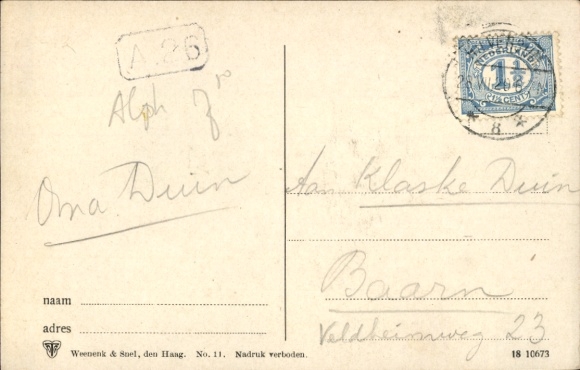 A.26
Alph
Oma Duin
NEDERLAND
1½
1½ CENT
8
Aan Klaske Duin
Baarn
Veldheimweg 23
naam
adres
Weenenk & Snel, den Haag. No. 11. Nadruk verboden.
18 10673